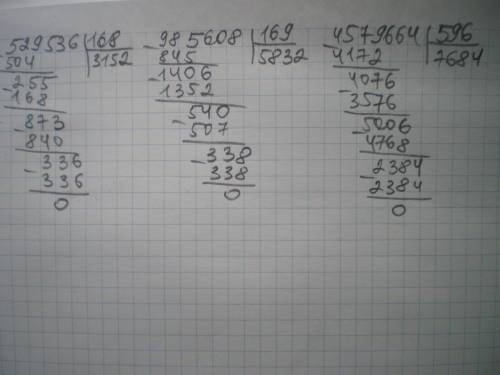 529536 168 - 985608 169 - 4579664 596
504 3152 845 5832 4172 7684
- 255 - 1406 - 4076
168 1352 3576
- 873 - 540 - 5006
840 507 4768
- 336 - 338 - 2384
336 338 2384
0 0 0